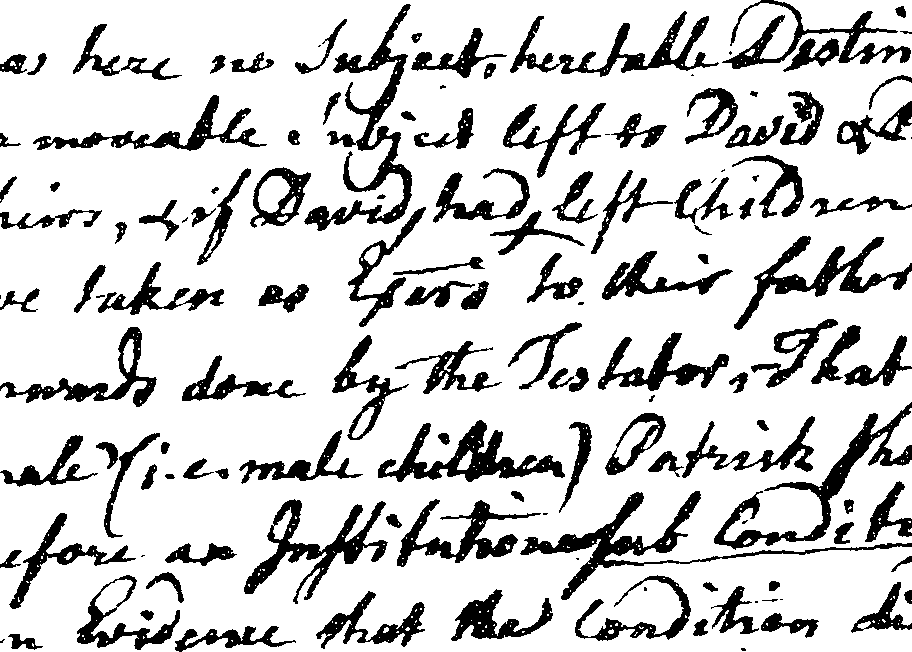 as here no Subject, heretable Destin
moveable Subject left to David & P
heirs, & if David, had left Children
ve taken as to their father
rwards done by the Testator, That
nale (i.e. male children) Patrick sho
efore an Institutione sub Conditi
n Evidence that the Condition di